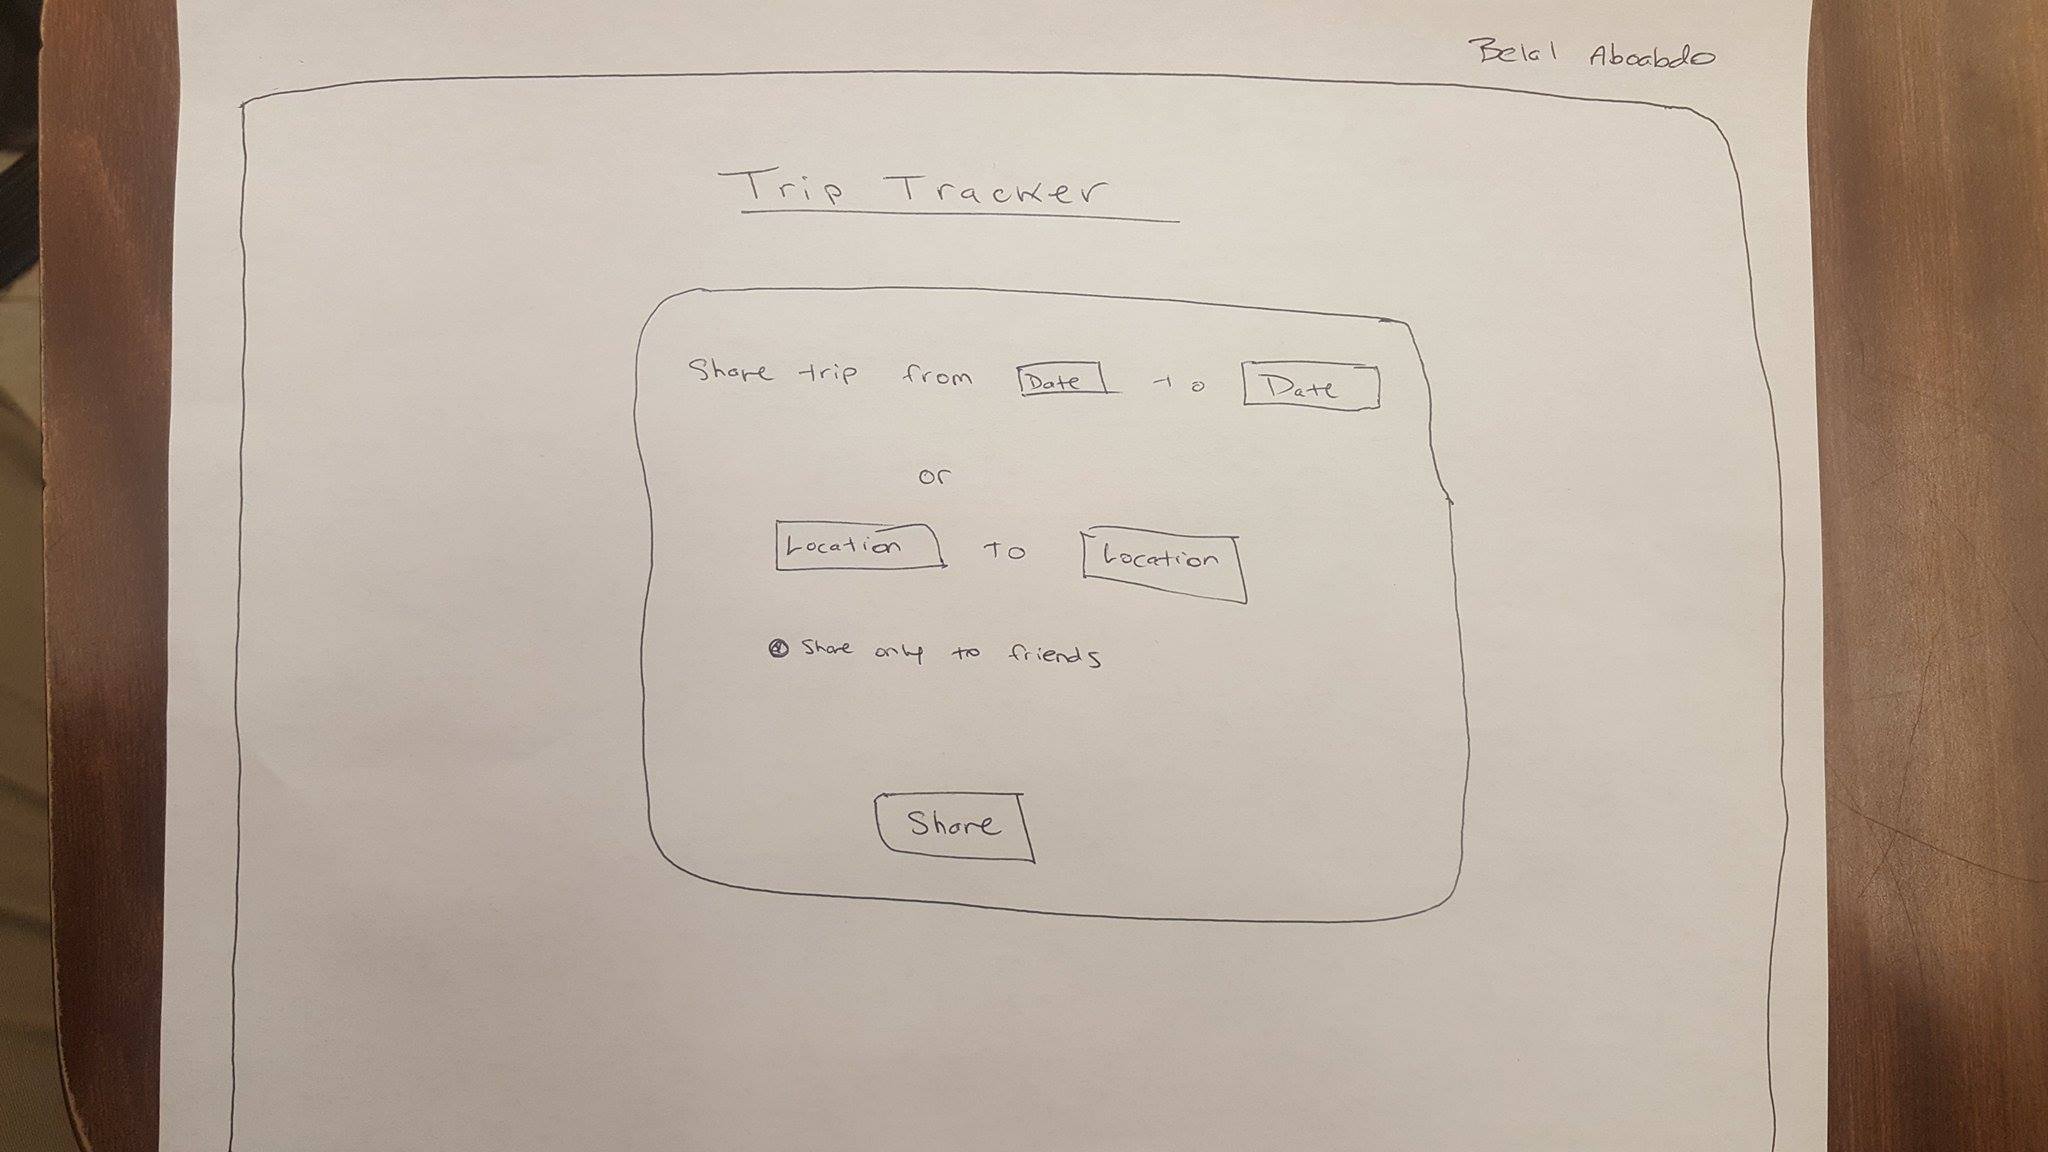 Belal Aboabdo
Trip Tracker
Share trip from Date to Date
or
Location to Location
Share only to friends
Share